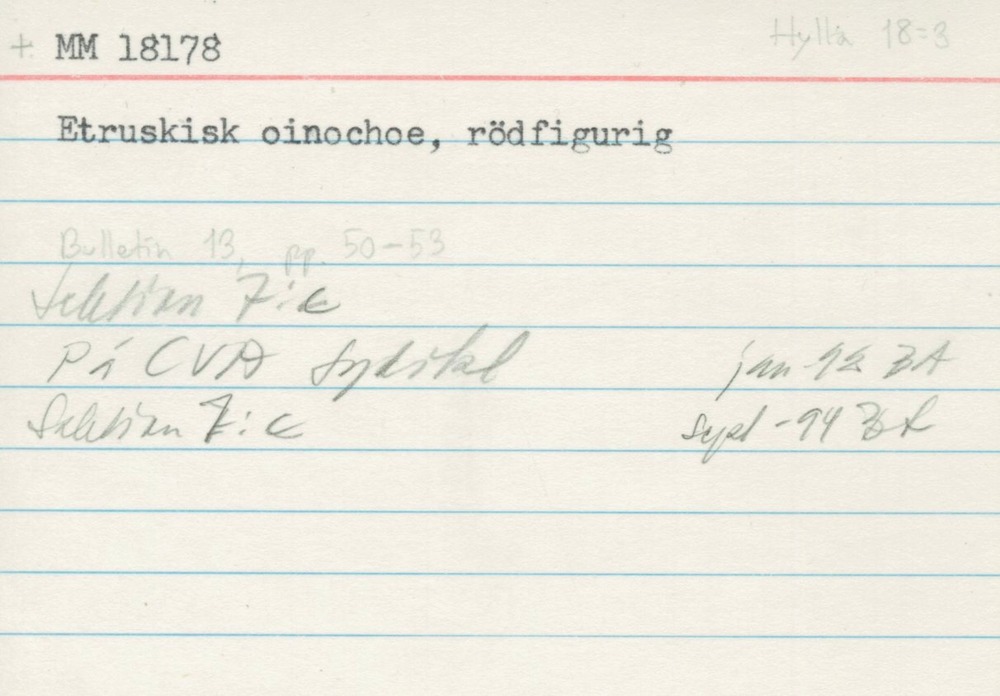 + MM 18178 Hylla 18:3
Etruskisk oinochoe, rödfigurig
Bulletin 13, pp. 50-53
Sektion 7:c
På CVA jan -92
Sektion 7:c sept -94